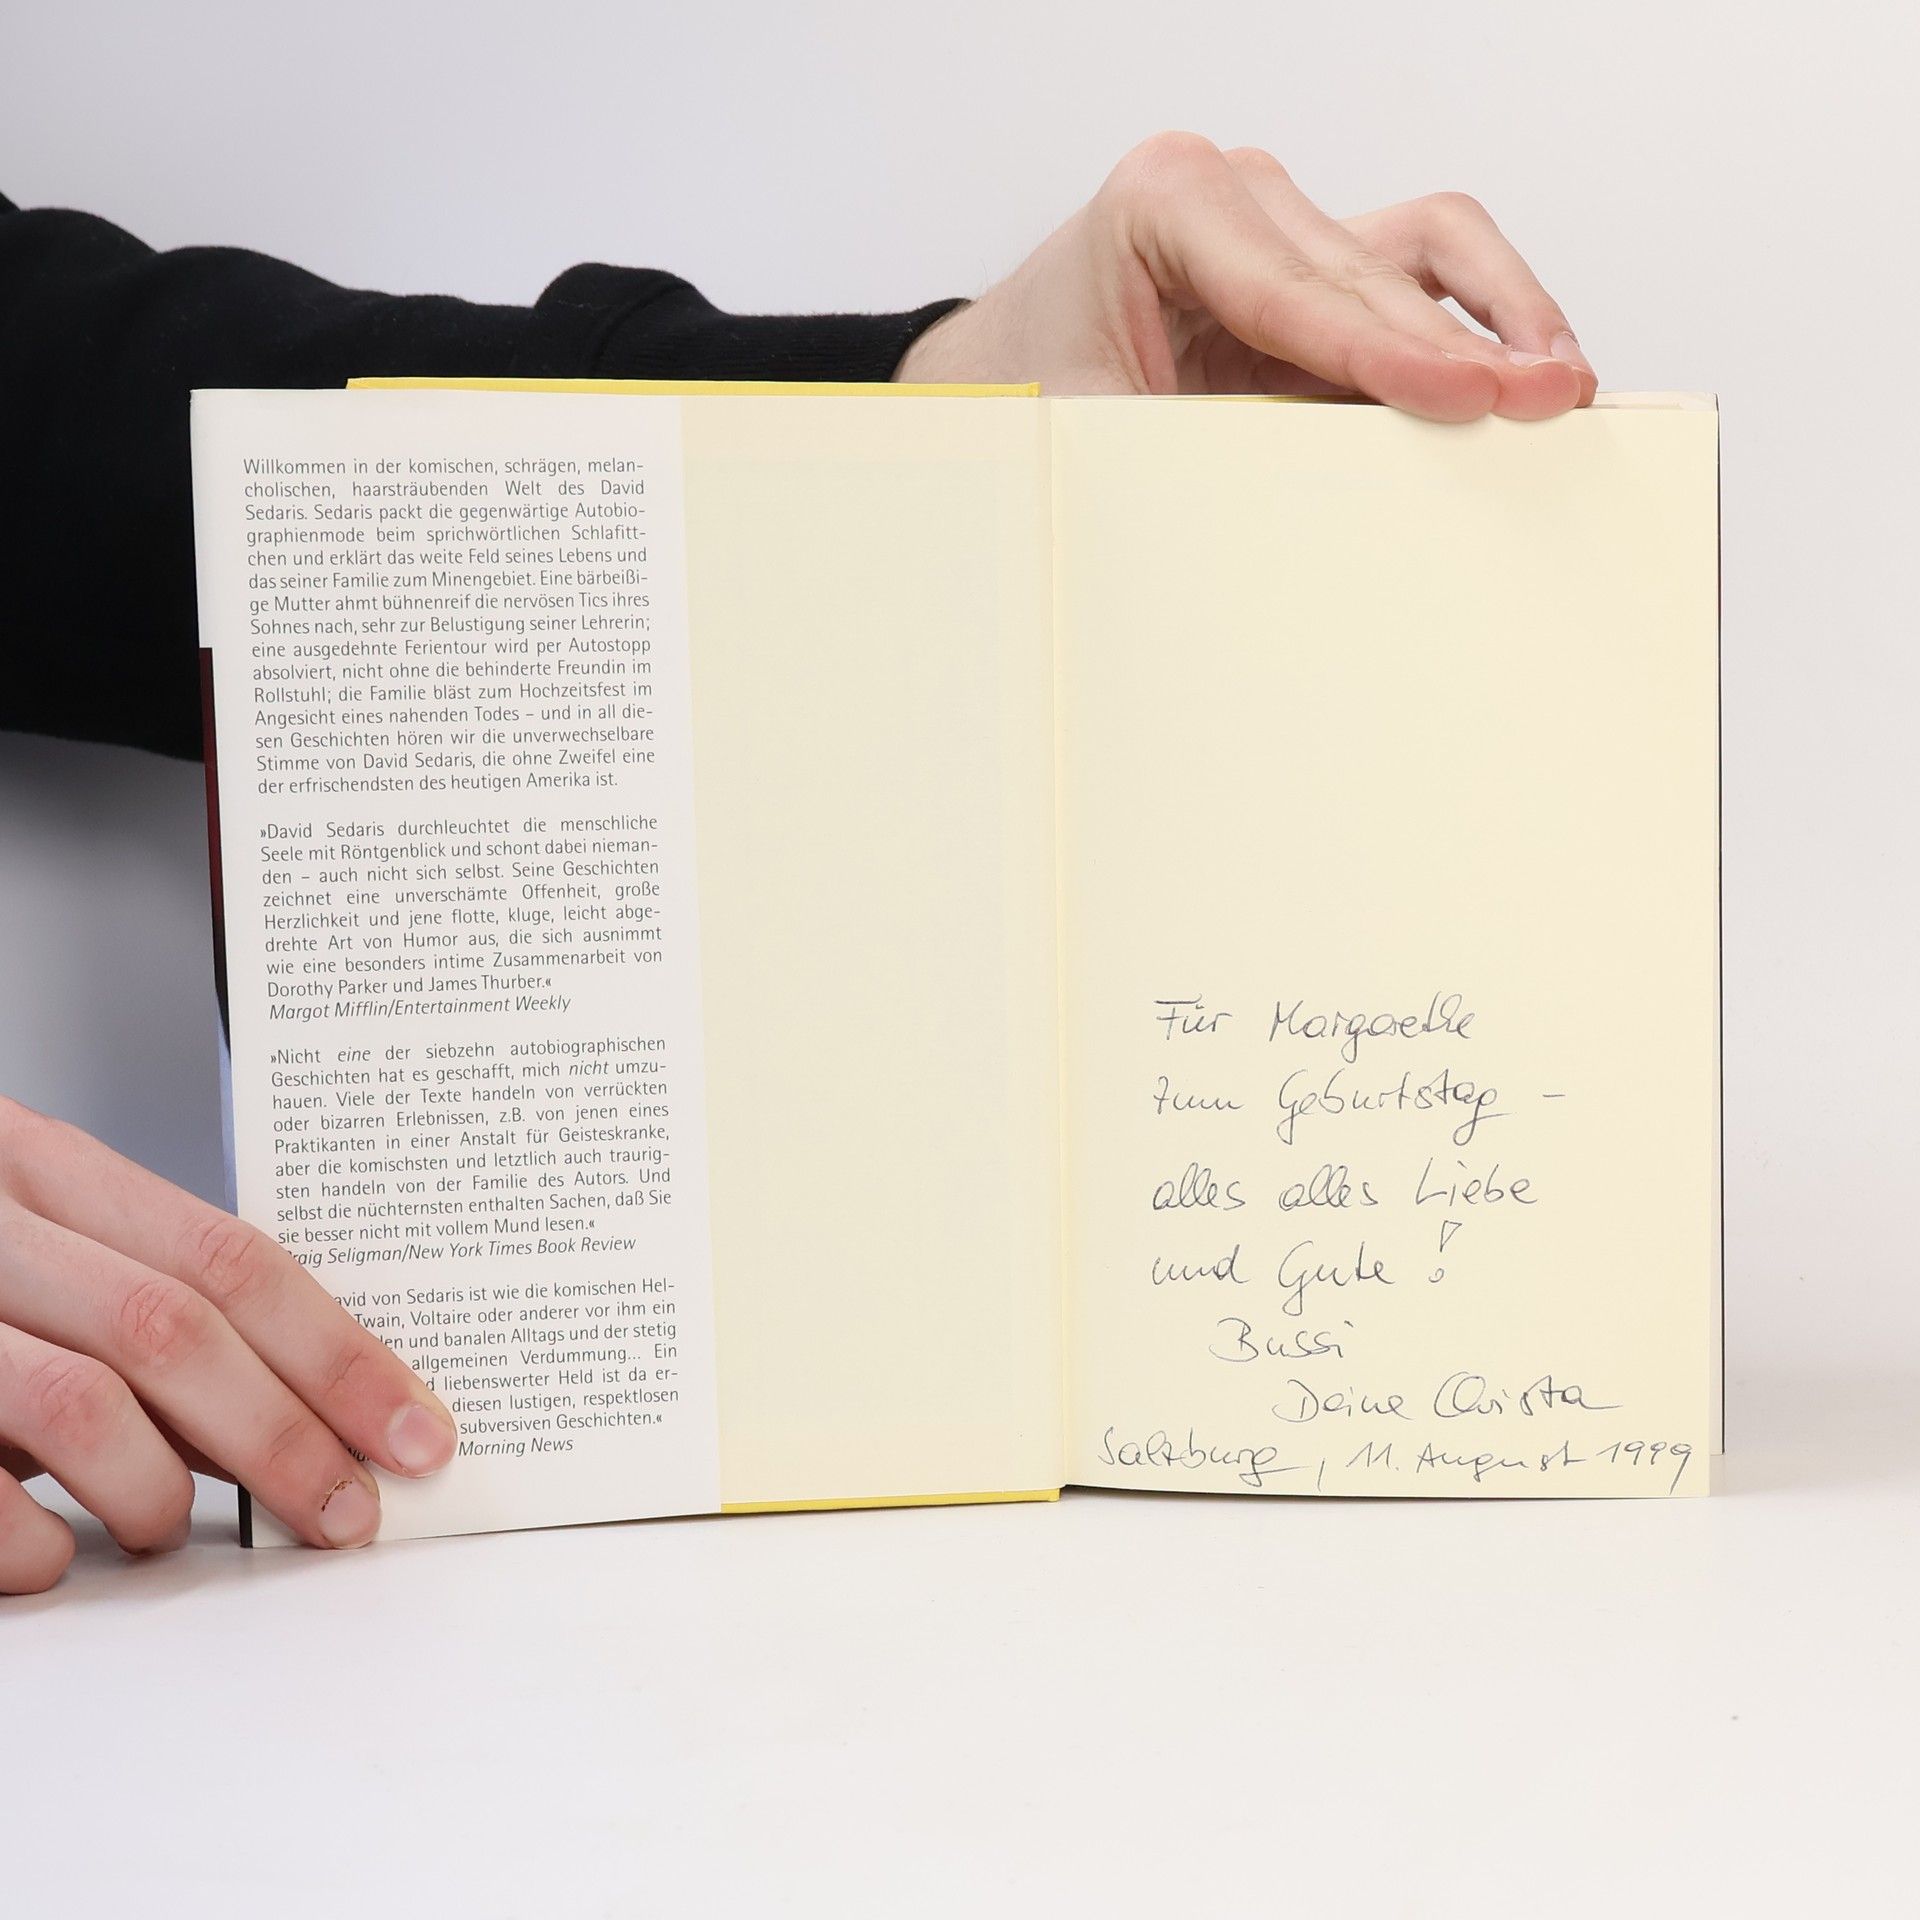 Willkommen in der komischen, schrägen, melan-
cholischen, haarsträubenden Welt des David
Sedaris. Sedaris packt die gegenwärtige Autobio-
graphienmode beim sprichwörtlichen Schlafitt-
chen und erklärt das weite Feld seines Lebens und
das seiner Familie zum Minengebiet. Eine bärbeißi-
ge Mutter ahmt bühnenreif die nervösen Tics ihres
Sohnes nach, sehr zur Belustigung seiner Lehrerin;
eine ausgedehnte Ferientour wird per Autostopp
absolviert, nicht ohne die behinderte Freundin im
Rollstuhl; die Familie bläst zum Hochzeitsfest im
Angesicht eines nahenden Todes – und in all die-
sen Geschichten hören wir die unverwechselbare
Stimme von David Sedaris, die ohne Zweifel eine
der erfrischendsten des heutigen Amerika ist.
»David Sedaris durchleuchtet die menschliche
Seele mit Röntgenblick und schont dabei nieman-
den – auch nicht sich selbst. Seine Geschichten
zeichnet eine unverschämte Offenheit, große
Herzlichkeit und jene flotte, kluge, leicht abge-
drehte Art von Humor aus, die sich ausnimmt
wie eine besonders intime Zusammenarbeit von
Dorothy Parker und James Thurber.«
Margot Mifflin/Entertainment Weekly
»Nicht eine der siebzehn autobiographischen
Geschichten hat es geschafft, mich nicht umzu-
hauen. Viele der Texte handeln von verrückten
oder bizarren Erlebnissen, z.B. von jenen eines
Praktikanten in einer Anstalt für Geisteskranke,
aber die komischsten und letztlich auch traurig-
sten handeln von der Familie des Autors. Und
selbst die nüchternsten enthalten Sachen, daß Sie
sie besser nicht mit vollem Mund lesen.«
raig Seligman/New York Times Book Review
avid von Sedaris ist wie die komischen Hel-
Twain, Voltaire oder anderer vor ihm ein
len und banalen Alltags und der stetig
allgemeinen Verdummung... Ein
d liebenswerter Held ist da er-
diesen lustigen, respektlosen
subversiven Geschichten.«
Morning News
Für Margarethe
zum Geburtstag –
alles alles Liebe
und Gute!
Bussi
Deine Christa
Salzburg, 11. August 1999